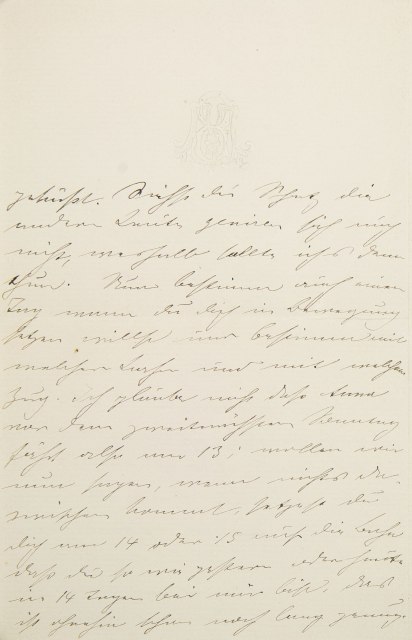 geküßt. Siehst du Schatz, die
andern Leute geniren sich auch
nicht, weshalb sollte ich es denn
thun. Nun bestimme auch einen
Tag wann du dich in Bewegung
setzen willst und bestimme mit
welcher und mit welchem
Zug. Ich glaube nicht daß Anna
vor dem zweitnächsten Sonntag
fährt also am 13; wollen wir
nun sagen, wenn nichts da-
zwischen kommt, setzest du
dich am 14 oder 15 auf die Bahn
daß du so wie gestern oder heute
in 14 Tagen bei mir bist, das
ist ohnehin schon noch lang genug.